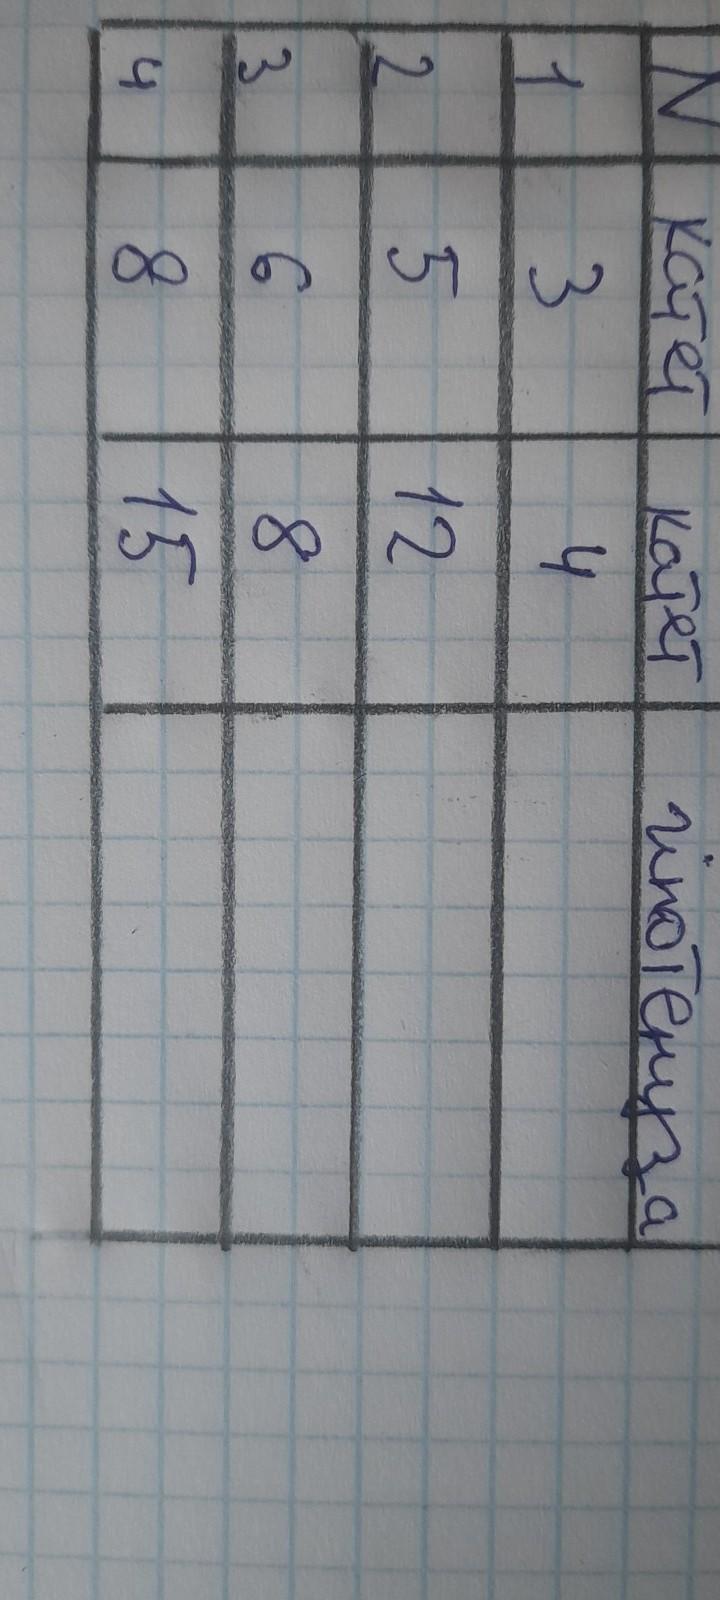 N катет катет гіпотенуза
1 3 4
2 5 12
3 6 8
4 8 15